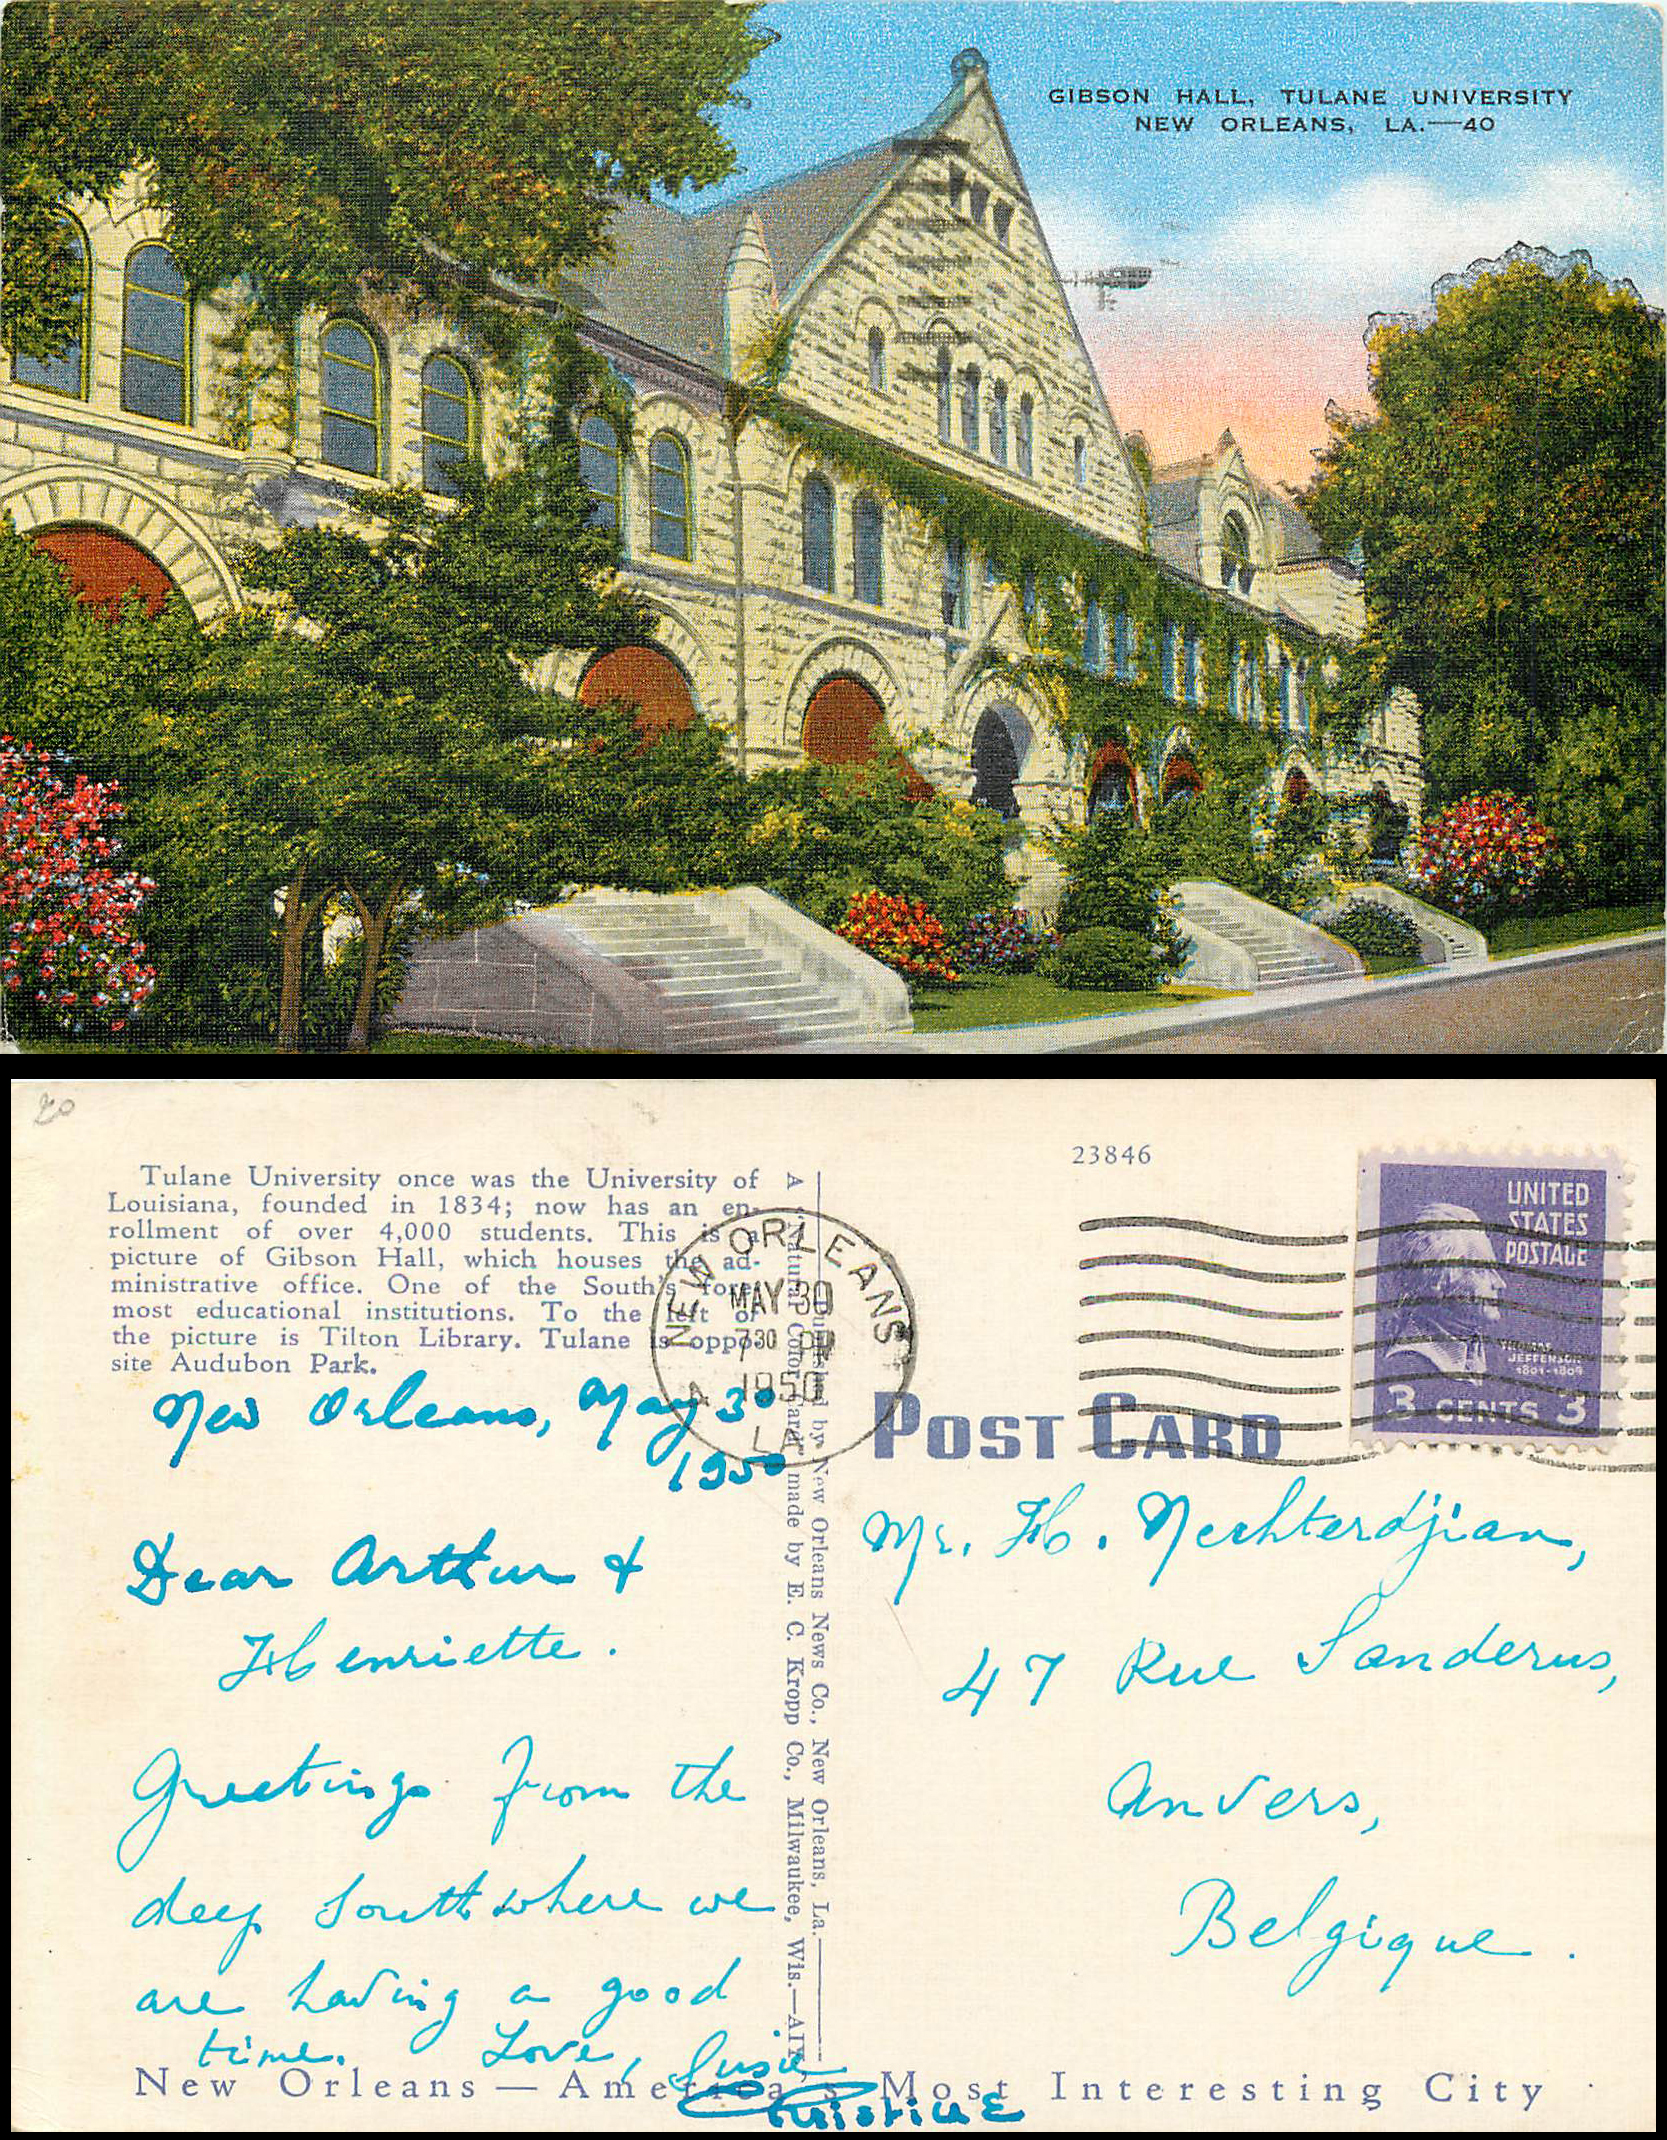 GIBSON HALL, TULANE UNIVERSITY
NEW ORLEANS, LA.—40
20
Tulane University once was the University of
Louisiana, founded in 1834; now has an en-
rollment of over 4,000 students. This is a
picture of Gibson Hall, which houses the ad-
ministrative office. One of the South's fore-
most educational institutions. To the left of
the picture is Tilton Library. Tulane is oppo-
site Audubon Park.
New Orleans, May 30
1950
Dear Arthur &
Henriette.
Greetings from the
deep South where we
are having a good
time. Love, Susie
Christine
A "Natural Color Card" made by E. C. Kropp Co., Milwaukee, Wis.—
Published by New Orleans News Co., New Orleans, La.
NEW ORLEANS
MAY 30
7 30 PM
1950
LA
23846
UNITED
STATES
POSTAGE
THOMAS
JEFFERSON
1801-1809
3 CENTS 3
POST CARD
Mr. H. Nechterdjian,
47 Rue Sanderus,
Anvers,
Belgique.
New Orleans — America's Most Interesting City